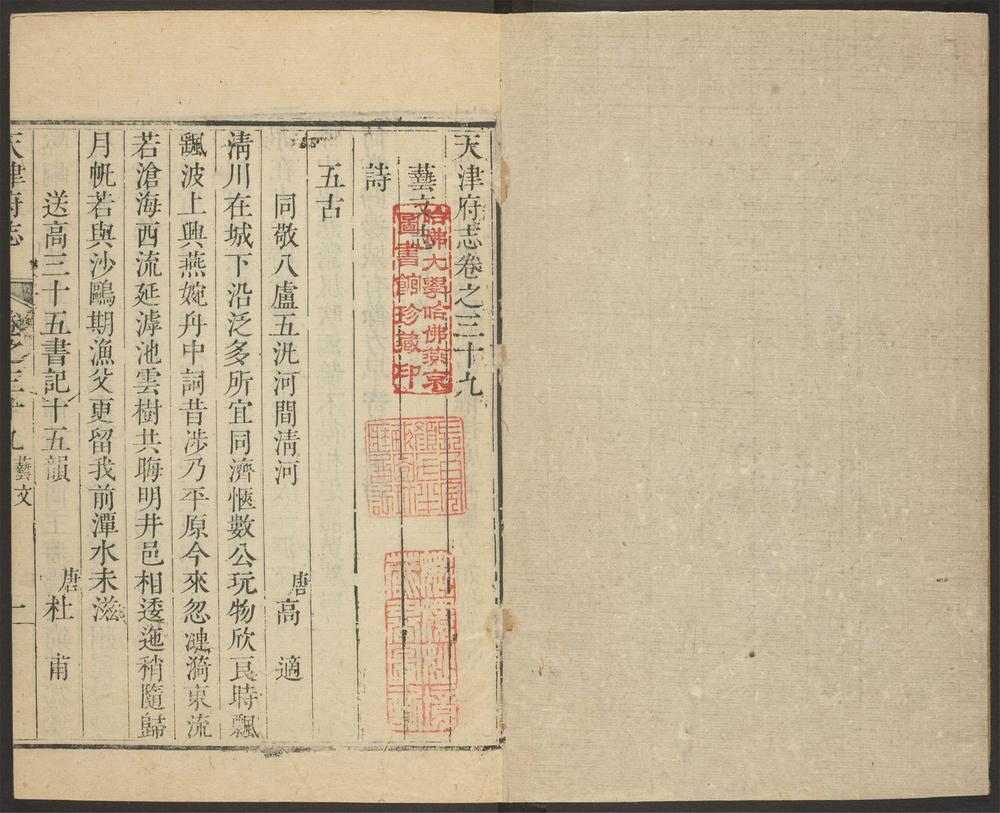 天津府志卷之三十九
藝文志
詩
五古
同敬八盧五汎河間清河
唐高適
清川在城下沿泛多所宜同濟愜數公玩物欣良時飄
飄波上興燕婉舟中詞昔涉乃平原今來忽漣漪東流
若滄海西流延滹池雲樹共晦明井邑相逶迤稍隨歸
月帆若與沙鷗期漁父更留我前潭水未滋
送高三十五書記十五韻
唐杜甫
天津府志
卷之三十九
藝文
一
哈佛大學哈佛燕京
圖書館珍藏印